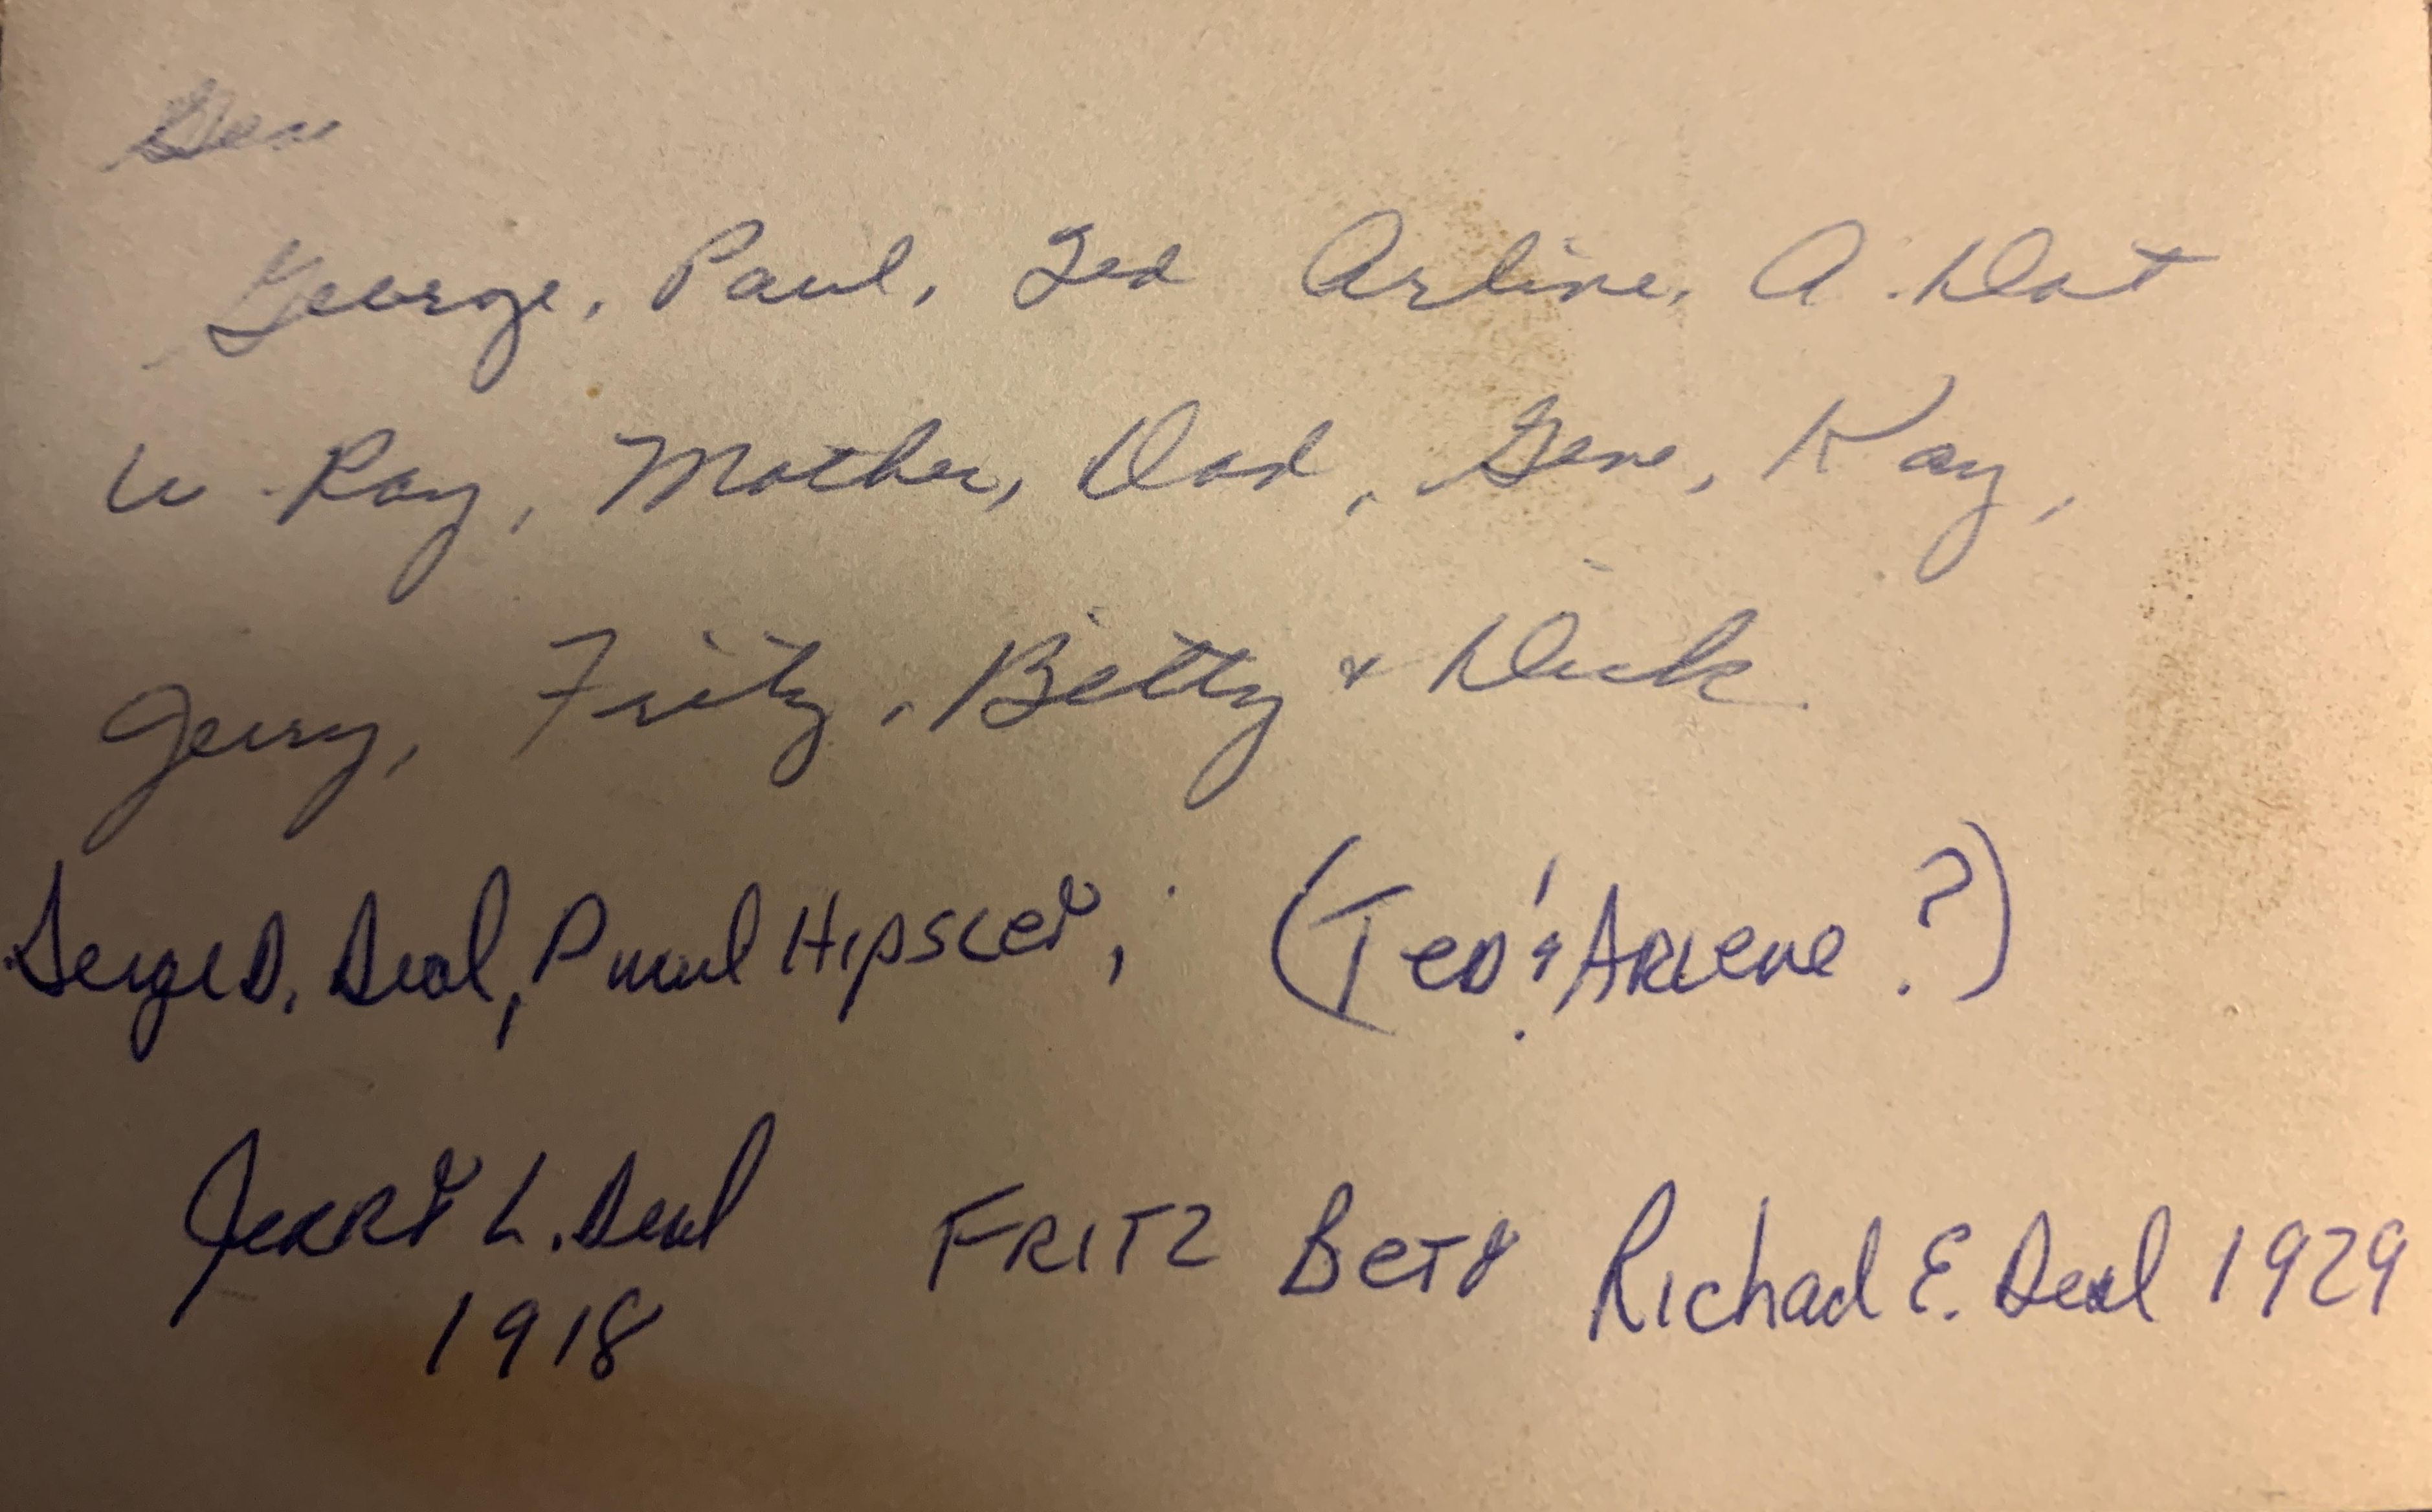 Gen
George, Paul, Ted Arline, A. Dot
U. Ray, Mother, Dad, Gene, Kay,
Jerry, Fritz, Betty & Dick
D. Deal, Paul Hipscer, (Ted & Arlene?)
Jerry L. Deal FRITZ Bety Richad E. Deal 1929
1918